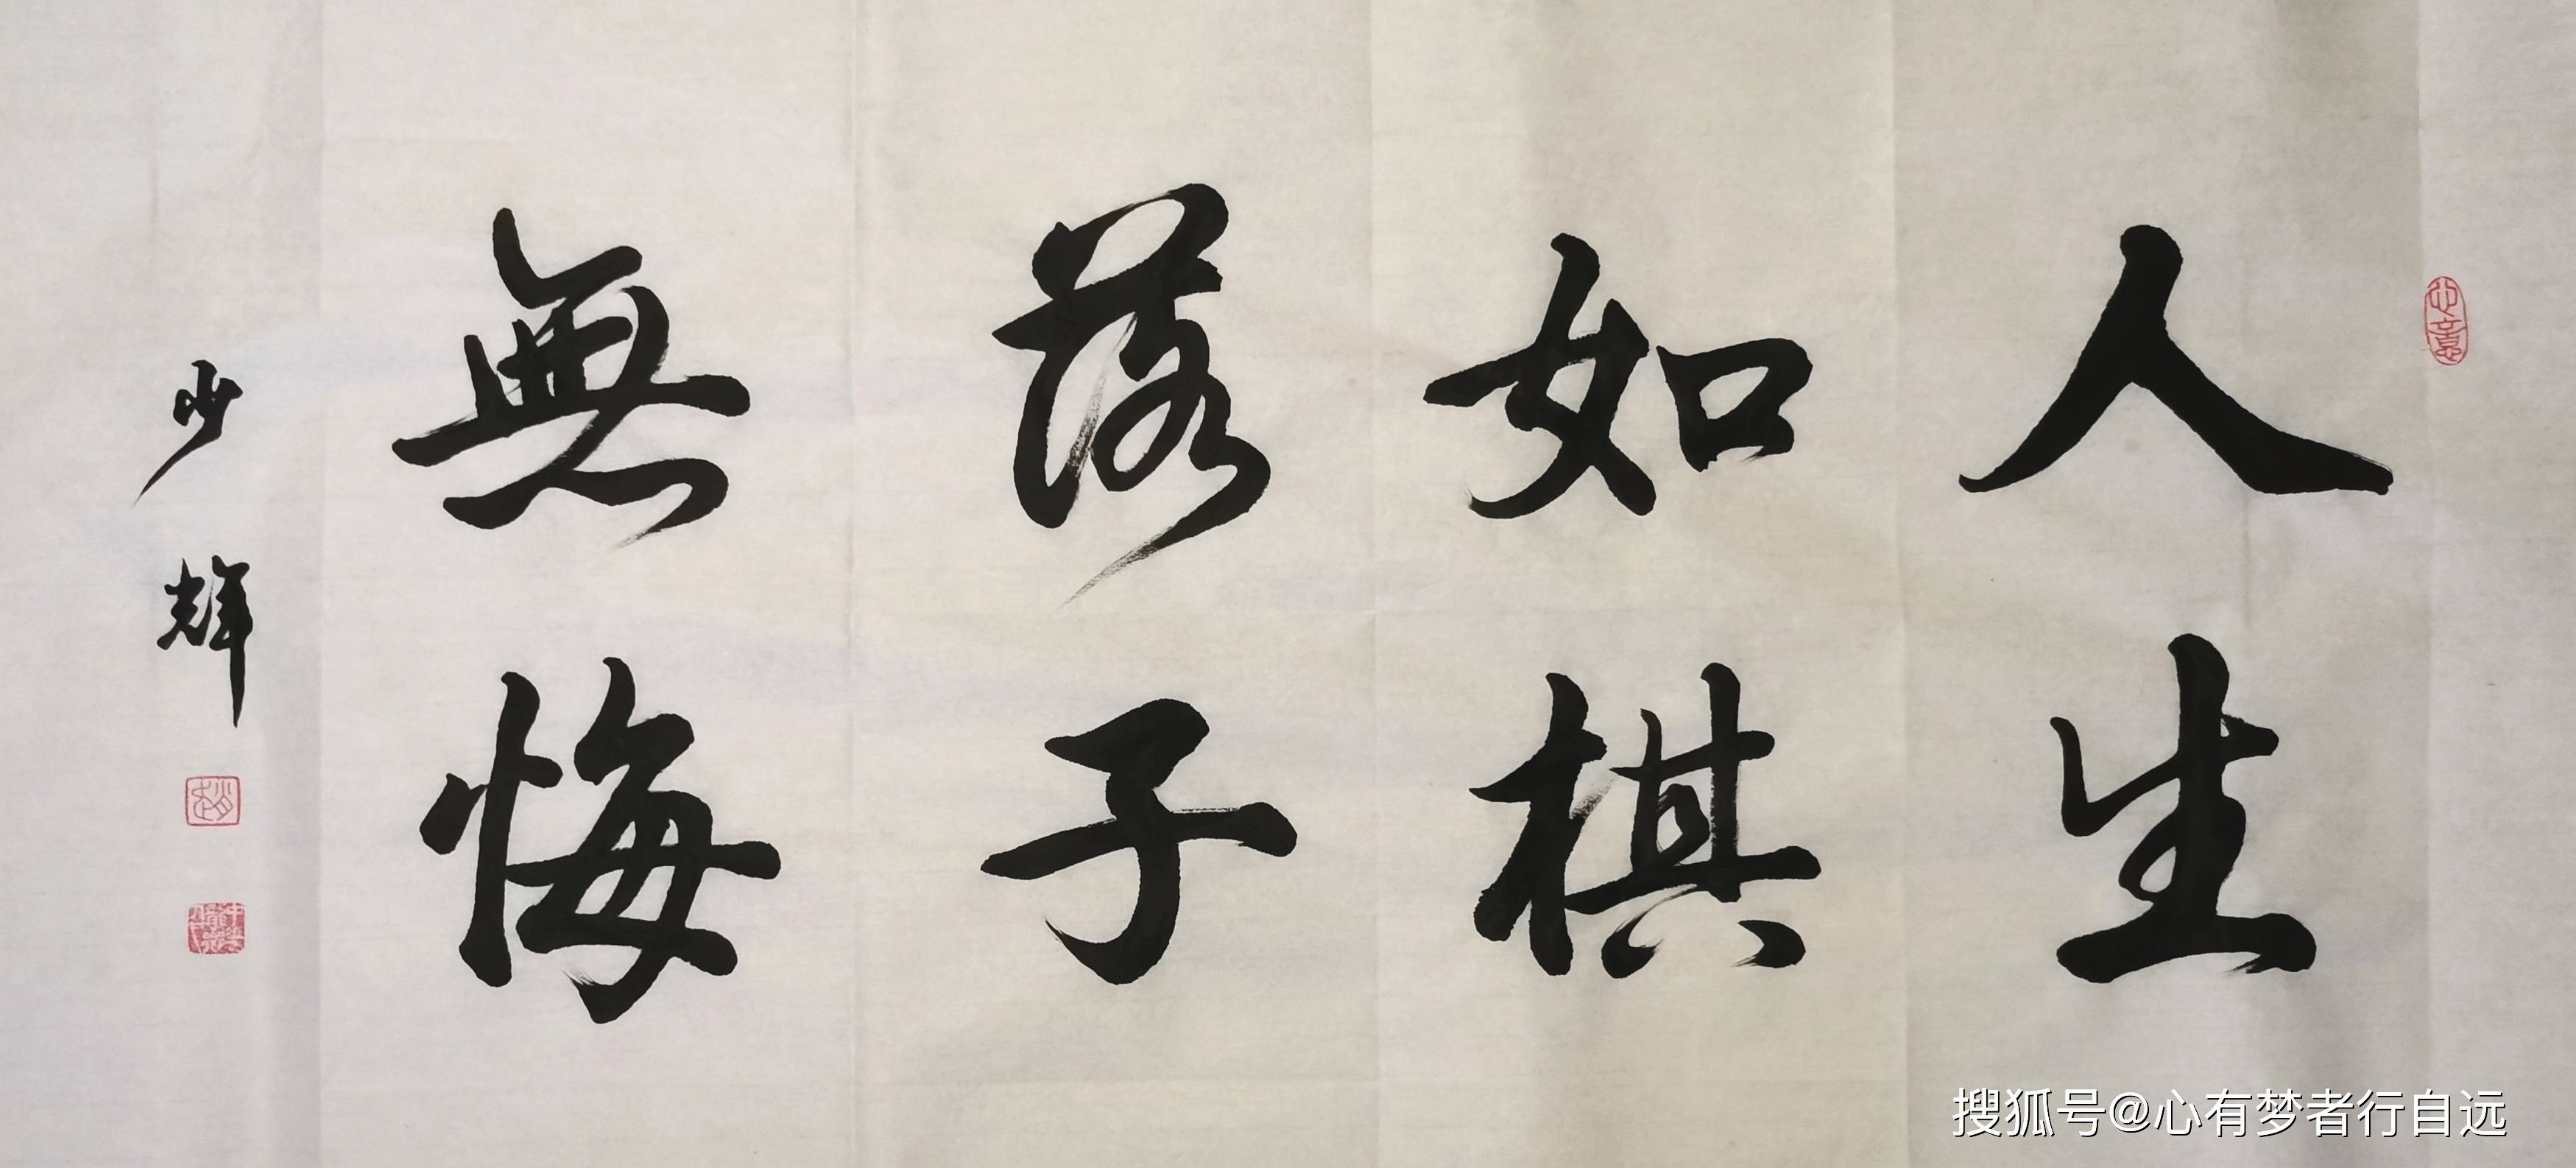 人生
如棋
落子
無悔
少輝
心意
搜狐号@心有梦者行自远